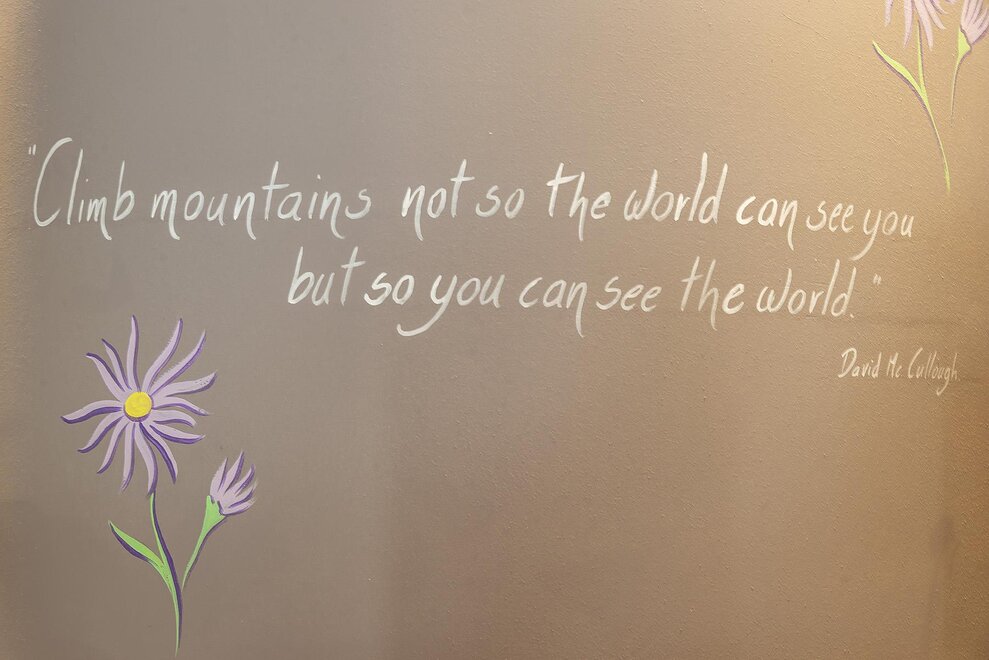 "Climb mountains not so the world can see you
but so you can see the world."
David Mc Cullough